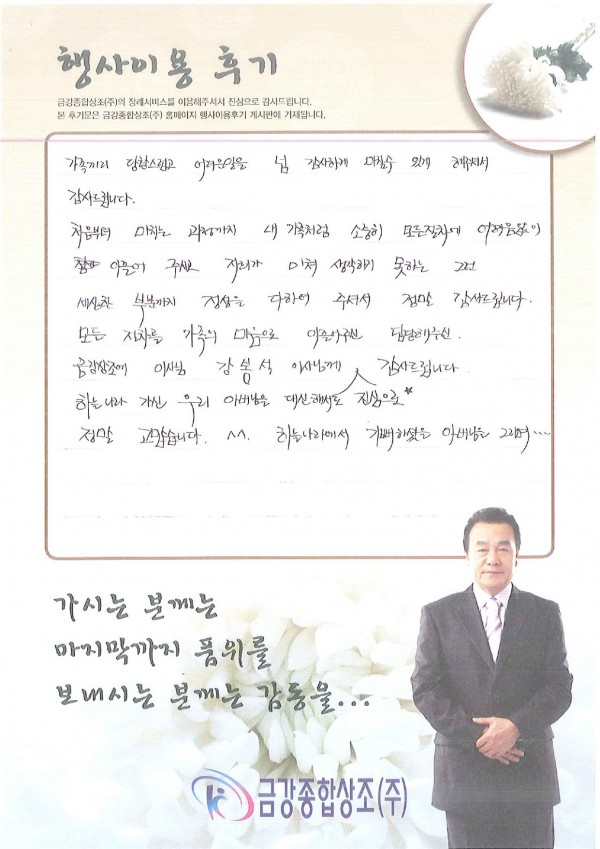 행사이용 후기
금강종합상조(주)의 장례서비스를 이용해주셔서 진심으로 감사드립니다.
본 후기문은 금강종합상조(주) 홈페이지 행사이용후기 게시판에 기재됩니다.
가족끼리 당황스럽고 어려운일을 넘 감사하게 마칠수 있게 해주셔서
감사드립니다.
처음부터 마치는 과정까지 내 가족처럼 소중히 모든절차에 어려움없이
이끌어 주시고 저희가 미처 생각하기 못하는 그런
세심한 부분까지 정성을 다하여 주셔서 정말 감사드립니다.
모든 절차를 가족의 마음으로 이끌어주신 담당해주신
금강상조에 이사님 강봉석 이사님께 감사드립니다
하늘나라 가신 우리 아버님을 대신해서도 진심으로*
정말 고맙습니다. ^^. 하늘나라에서 기뻐하셨을 아버님을 그리며....
가시는 분께는
마지막까지 품위를
보내시는 분께는 감동을...
금강종합상조(주)